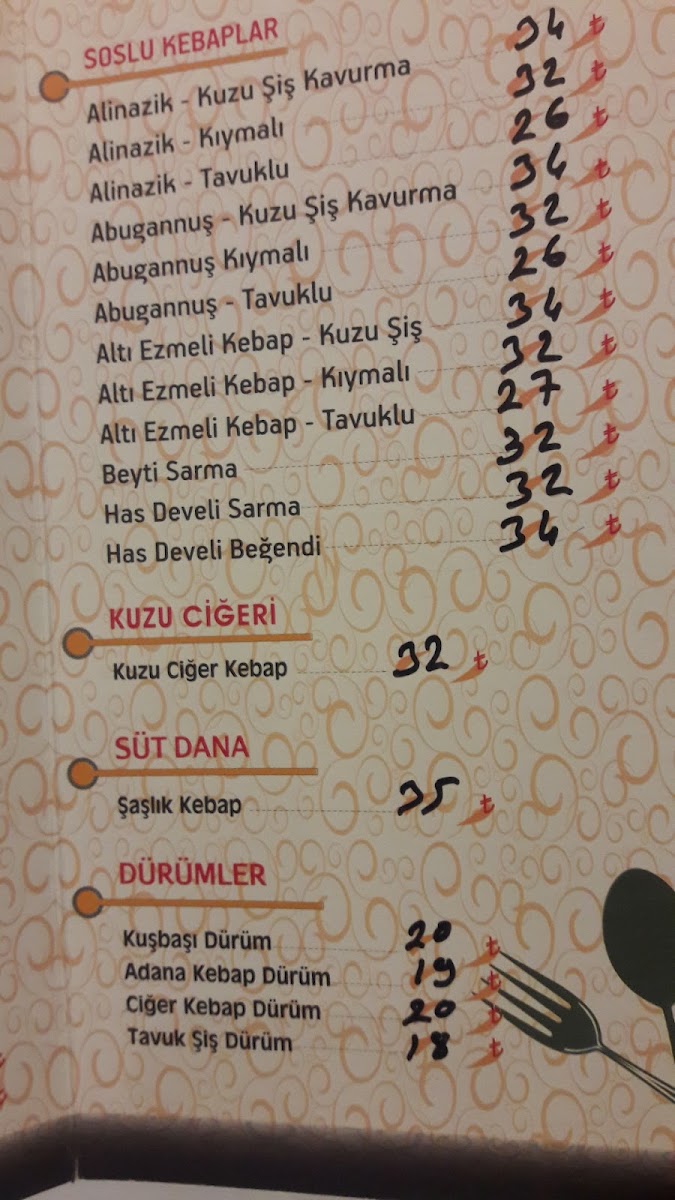 SOSLU KEBAPLAR
Alinazik - Kuzu Şiş Kavurma 34 ₺
Alinazik - Kıymalı 32 ₺
Alinazik - Tavuklu 26 ₺
Abugannuş - Kuzu Şiş Kavurma 34 ₺
Abugannuş Kıymalı 32 ₺
Abugannuş - Tavuklu 26 ₺
Altı Ezmeli Kebap - Kuzu Şiş 34 ₺
Altı Ezmeli Kebap - Kıymalı 32 ₺
Altı Ezmeli Kebap - Tavuklu 27 ₺
Beyti Sarma 32 ₺
Has Develi Sarma 32 ₺
Has Develi Beğendi 34 ₺
KUZU CİĞERİ
Kuzu Ciğer Kebap 32 ₺
SÜT DANA
Şaşlık Kebap 35 ₺
DÜRÜMLER
Kuşbaşı Dürüm 20 ₺
Adana Kebap Dürüm 19 ₺
Ciğer Kebap Dürüm 20 ₺
Tavuk Şiş Dürüm 18 ₺